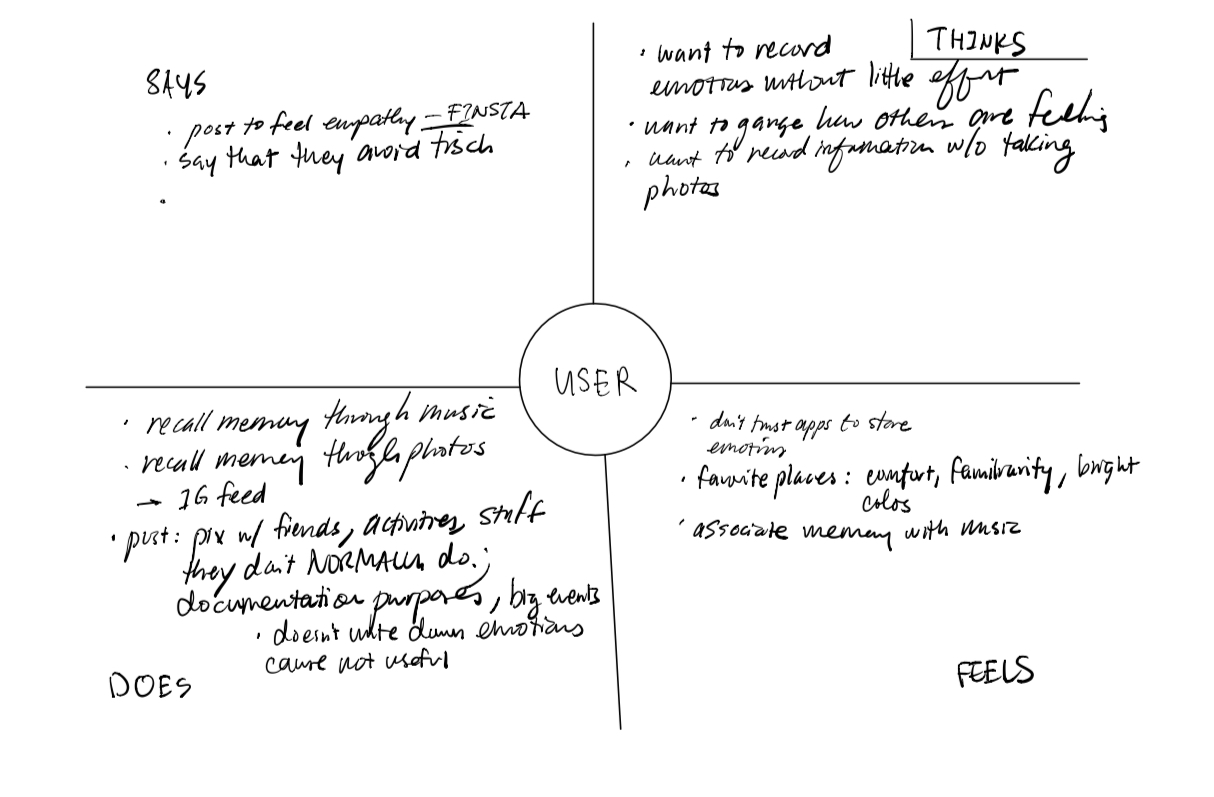 SAYS
· post to feel empathy – FINSTA
· say that they avoid tisch
·
THINKS
· want to record
emotions without little effort
· want to gauge how others are feeling
· want to record information w/o taking
photos
USER
· recall memory through music
· recall memory through photos
→ IG feed
· post: pix w/ friends, activities, stuff
they don't NORMALLY do.;
documentation purposes, big events
· doesn't write down emotions
cause not useful
DOES
· don't trust apps to store
emotions
· favorite places: comfort, familiarity, bright
colos
· associate memory with music
FEELS